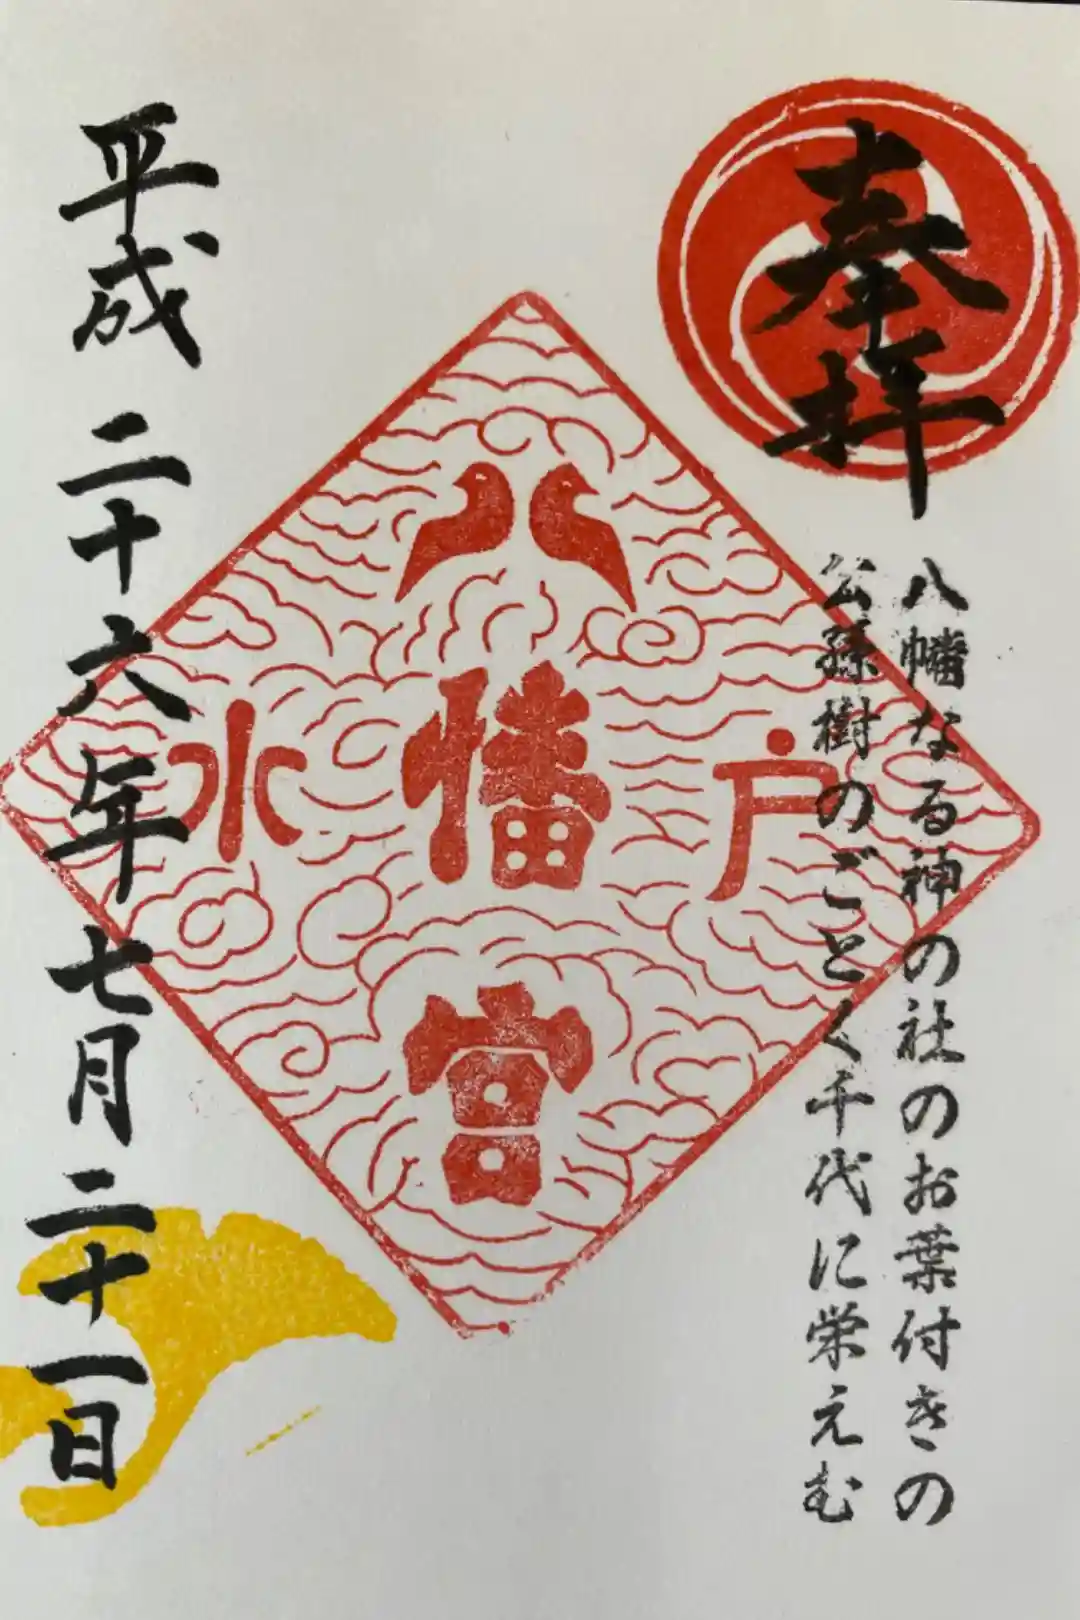 奉拝
八幡なる神の社のお葉付きの
公孫樹のごとく千代に栄えむ
水戸
八幡宮
平成二十六年七月二十一日